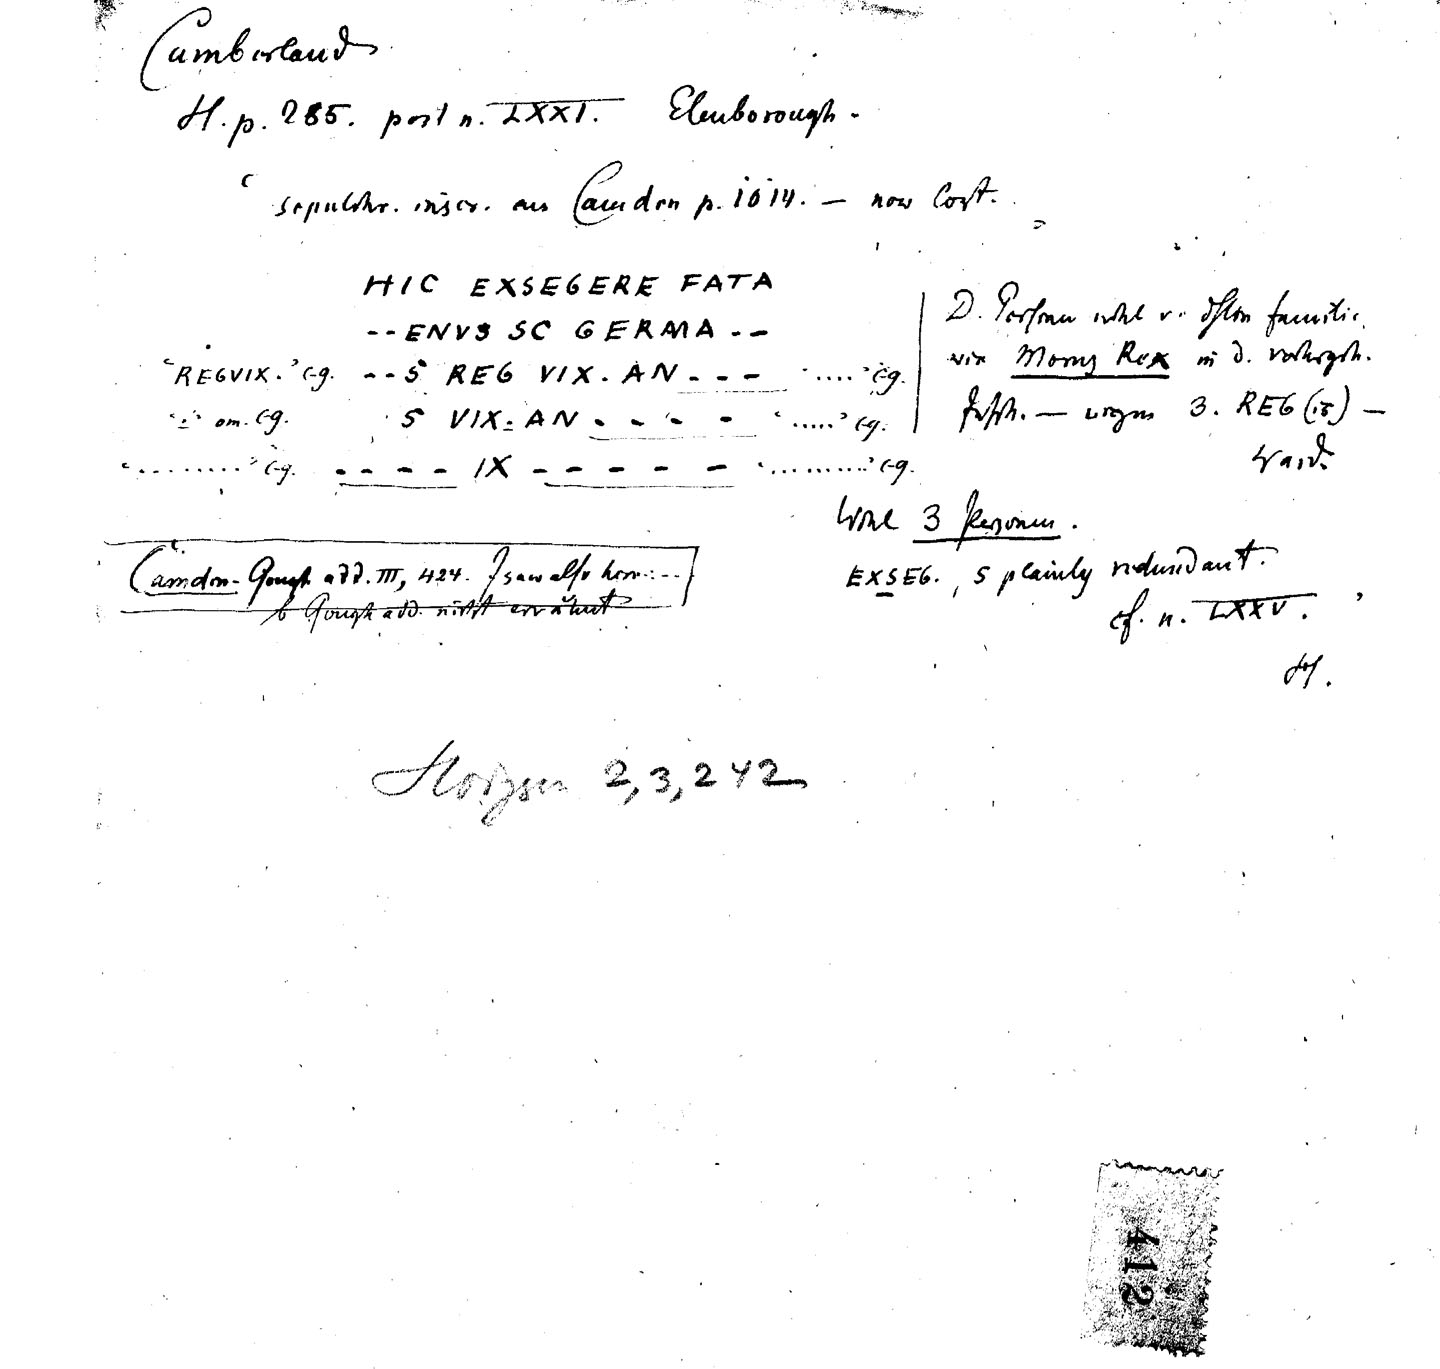 Cumberland
H. p. 285. post n. LXXI. Elenborough.
‘ sepulchr. inscr. aus Camden p. 1014. — now Lost.
HIC EXSEGERE FATA
--ENVS SC GERMA--
‘REGVIX.’ C-g. --S REG VIX. AN--- ‘....’ C-g.
om. C-g. S VIX. AN ---- ‘.....’ C-g.
‘........’ C-g. ---- IX ----- ‘.........’ C-g.
D. Personen wohl v. dsln familie
wie Morus Rex in d. vorhrgeh.
Inschr. — wegen 3. REG (is) —
Ward.
Wohl 3 Personen.
EXSEG., S plainly redundant.
cf. n. LXXV. ’
H.
Camden-Gough add. III, 424. I saw also here ....
b Gough add. nicht erwähnt
Horsley 2, 3, 242
412